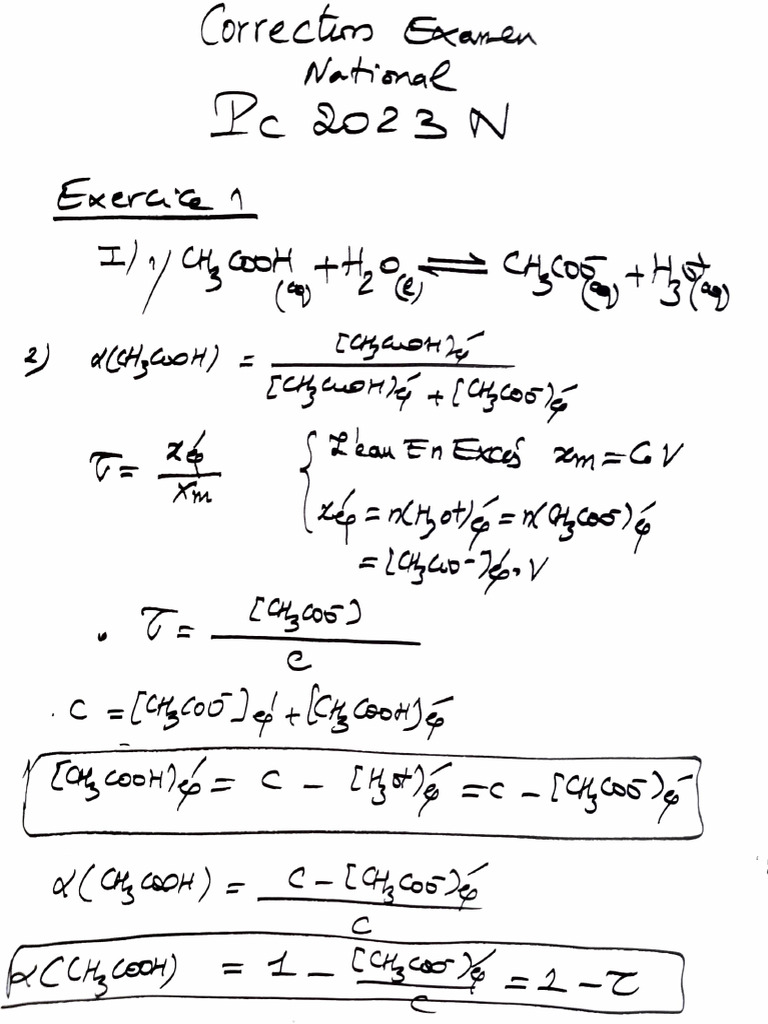 Correction Examen
National
Pc 2023 N
Exercice 1
I) 1) CH₃COOH(aq) + H₂O(ℓ) ⇌ CH₃COO⁻(aq) + H₃O⁺(aq)
2) α(CH₃COOH) = [CH₃COOH]éq / [CH₃COOH]éq + [CH₃COO⁻]éq
τ = xéq / xm { L'eau En Excés xm = C V
xéq = n(H₃O⁺)éq = n(CH₃COO⁻)éq
= [CH₃COO⁻]éq . V
. τ = [CH₃COO⁻] / C
. C = [CH₃COO⁻]éq + [CH₃COOH]éq
[CH₃COOH]éq = C - [H₃O⁺]éq = C - [CH₃COO⁻]éq
α(CH₃COOH) = C - [CH₃COO⁻]éq / C
α(CH₃COOH) = 1 - [CH₃COO⁻]éq / C = 1 - τ